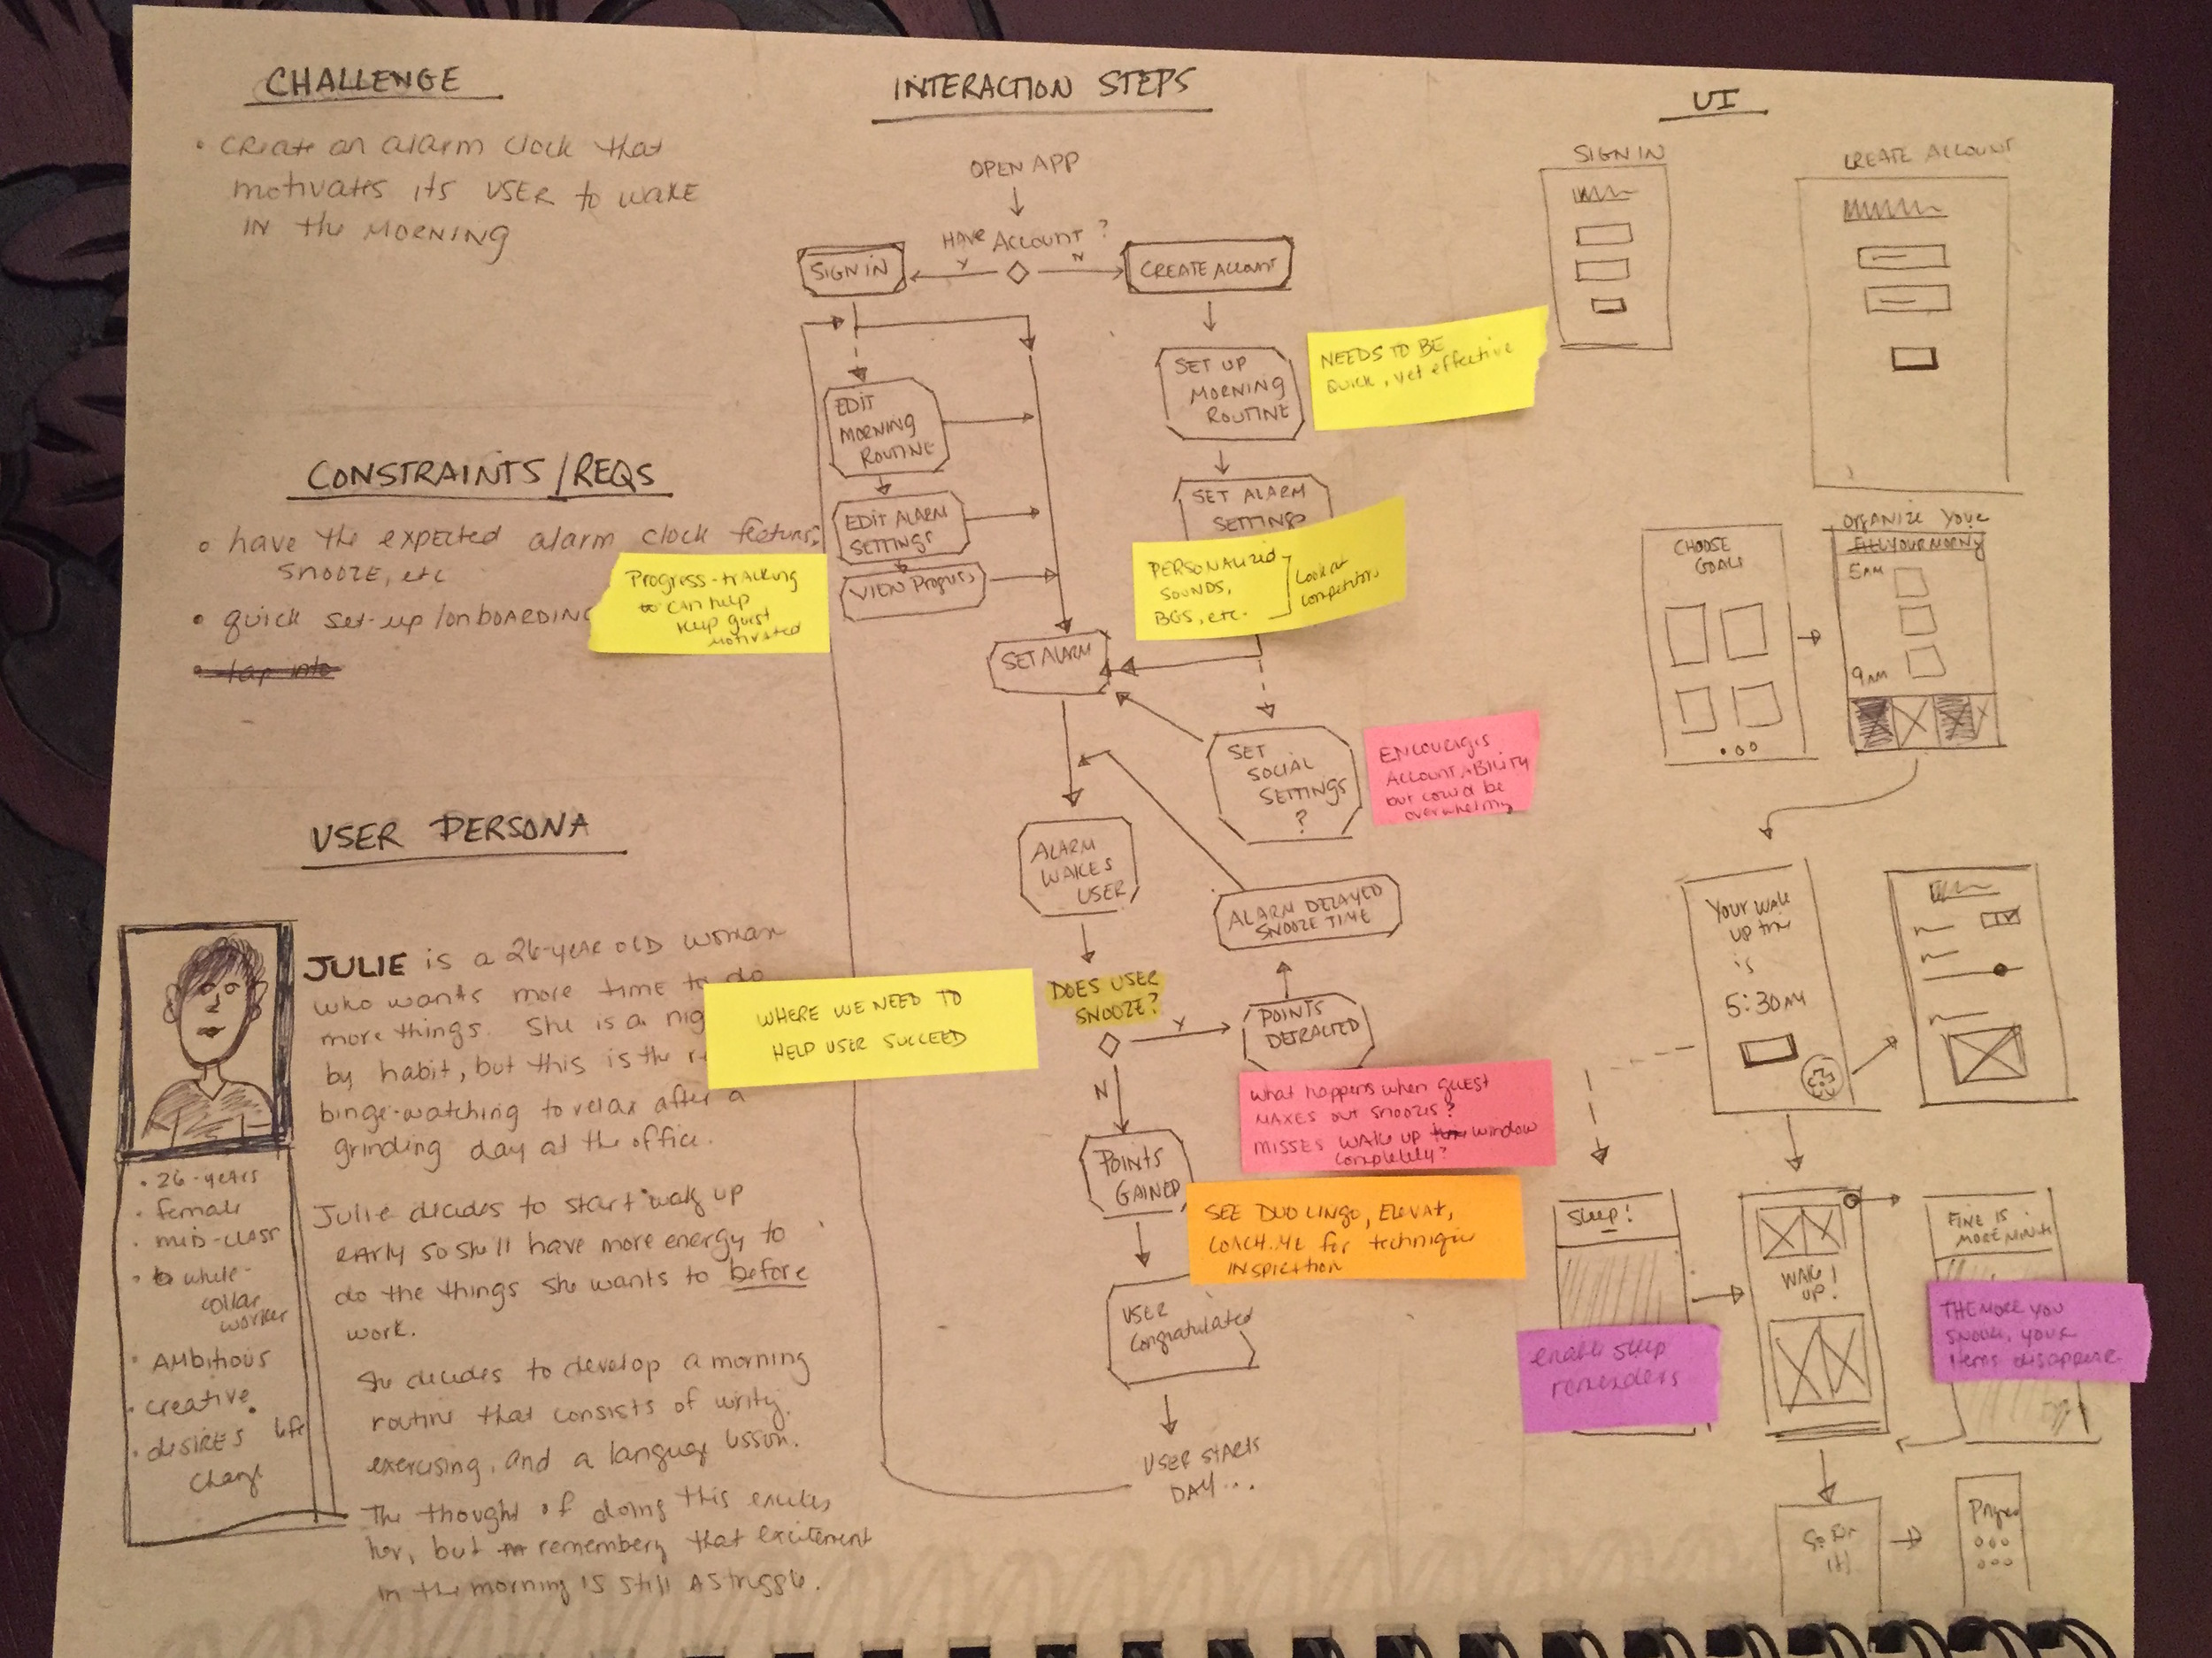 CHALLENGE
• create an alarm clock that
motivates its USER to wake
IN the MORNING
CONSTRAINTS/REQS
• have the expected alarm clock features
snooze, etc
• quick set-up/onboarding
• tap into
Progress-tracking
to can help
keep guest
motivated
USER PERSONA
JULIE is a 26-year old woman
who wants more time to do
more things. She is a nig
by habit, but this is the r
binge-watching to relax after a
grinding day at the office.
Julie decides to start wak up
early so she'll have more energy to
do the things she wants to before
work.
She decides to develop a morning
routine that consists of writing,
exercising, and a language lesson.
The thought of doing this excites
her, but remembering that excitement
in the morning is still a struggle.
• 26-years
• female
• mid-class
• white-
collar
worker
• Ambitious
• creative
• desires life
change
INTERACTION STEPS
OPEN APP
HAVE ACCOUNT?
Y
N
SIGN IN
CREATE ACCOUNT
EDIT
MORNING
ROUTINE
EDIT ALARM
SETTINGS
VIEW Progress
SET UP
MORNING
ROUTINE
NEEDS TO BE
quick, yet effective
SET ALARM
SETTINGS
PERSONALIZED
SOUNDS,
BGS, etc.
Look at
competitors
SET ALARM
SET
SOCIAL
SETTINGS
?
ENCOURAGES
ACCOUNTABILITY
but could be
overwhelming
ALARM
WAKES
USER
ALARM DELAYED
SNOOZE TIME
WHERE WE NEED TO
HELP USER SUCCEED
DOES USER
SNOOZE?
Y
N
POINTS
DETRACTED
What happens when guest
MAXES out snoozes?
MISSES WAKE UP window
completely?
POINTS
GAINED
SEE DUOLINGO, ELEVATE,
COACH.ME for technique
INSPIRATION
USER
Congratulated
USER STARTS
DAY...
UI
SIGN IN
CREATE ACCOUNT
CHOOSE
GOALS
ORGANIZE YOUR
5AM
9AM
Your wake
up time
is
5:30AM
Sleep!
enable sleep
reminders
WAKE
UP!
FINE 15
MORE MINUTES
THE MORE YOU
SNOOZE, YOUR
items disappear